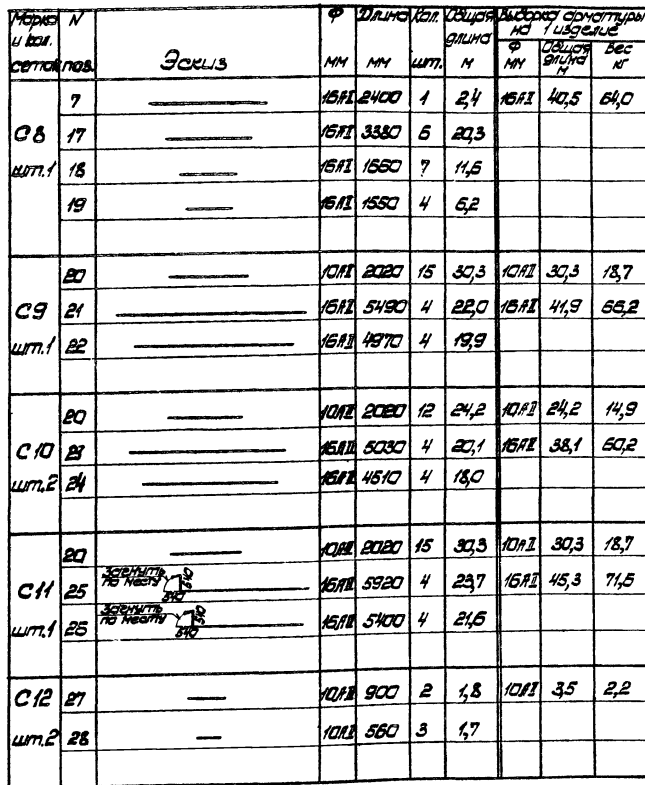 Марка и кол. сеток N поз. Эскиз Ф мм Длина мм Кол. шт. Общая длина м Выборка арматуры на 1 изделие
Ф мм Общая длина м Вес кг
7 16АII 2400 1 2,4 16АII 40,5 64,0
С8 17 16АII 3380 6 20,3
шт.1 18 16АII 1660 7 11,6
19 16АII 1550 4 6,2
20 10АII 2020 15 30,3 10АII 30,3 18,7
С9 21 16АII 5490 4 22,0 16АII 41,9 66,2
шт.1 22 16АII 4970 4 19,9
20 10АII 2020 12 24,2 10АII 24,2 14,9
С10 23 16АII 5030 4 20,1 16АII 38,1 60,2
шт.2 24 16АII 4510 4 18,0
20 10АII 2020 15 30,3 10АII 30,3 18,7
С11 25 Загнуть по месту 540 510 16АII 5920 4 23,7 16АII 45,3 71,6
шт.1 26 Загнуть по месту 540 510 16АII 5400 4 21,6
С12 27 10АII 900 2 1,8 10АII 3,5 2,2
шт.2 28 10АII 560 3 1,7